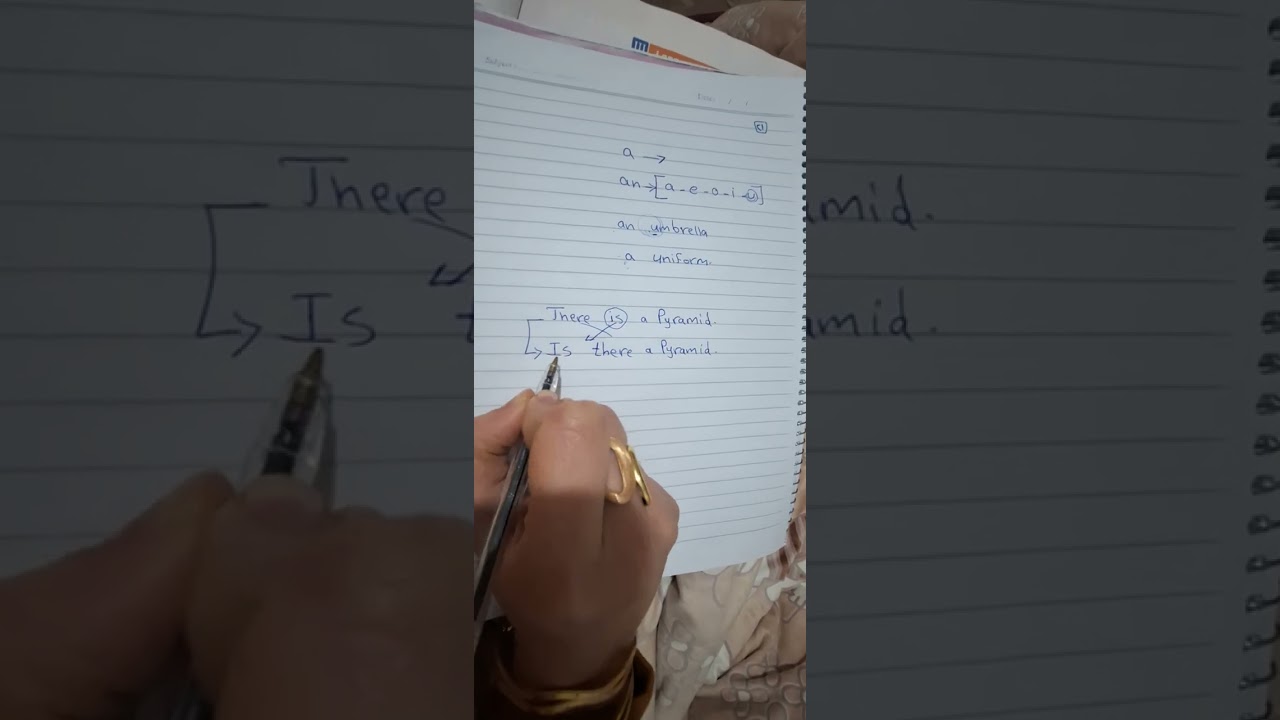 Subject:
Date: / /
a →
an → [a - e - o - i - u]
an umbrella
a uniform.
There is a Pyramid.
Is there a Pyramid.